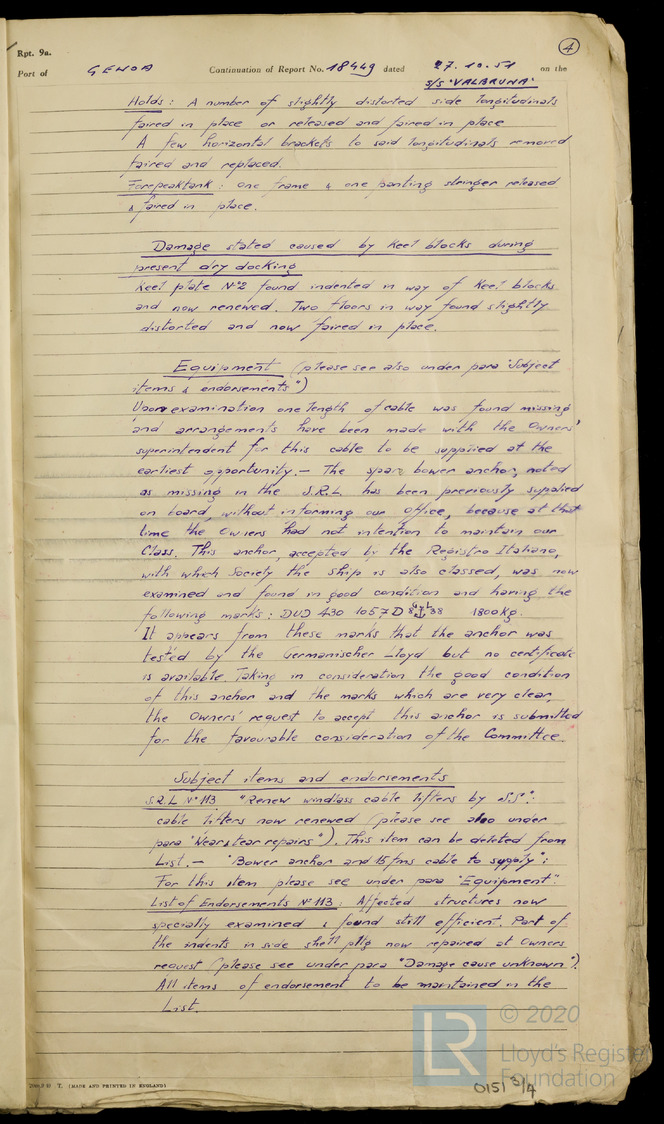 Rpt. 9a.
4
Port of GENOA Continuation of Report No. 18449 dated 27.10.51 on the
S/S "VALBRUNA"
Holds: A number of slightly distorted side longitudinals
faired in place or released and faired in place
A few horizontal brackets to said longitudinals removed
faired and replaced.
Forepeaktank: one frame & one panting stringer released
& faired in place.
Damage stated caused by keel blocks during
present dry docking
Keel plate No2 found indented in way of keel blocks
and now renewed. Two floors in way found slightly
distorted and now faired in place.
Equipment (please see also under para "Subject
items & endorsements")
Upon examination one length of cable was found missing
and arrangements have been made with the Owners'
superintendent for this cable to be supplied at the
earliest opportunity.- The spare bower anchor, noted
as missing in the S.R.L has been previously supplied
on board, without informing our office, because at that
time the Owners had not intention to maintain our
Class. This anchor, accepted by the Registro Italiano,
with which Society the ship is also classed, was now
examined and found in good condition and having the
following marks: DUD 430 1057D 8 G L 38 1800kg.
It appears from these marks that the anchor was
tested by the Germanischer Lloyd but no certificate
is available. Taking in consideration the good condition
of this anchor and the marks which are very clear,
the Owners' request to accept this anchor is submitted
for the favourable consideration of the Committee.
Subject items and endorsements
S.R.L No 113 "Renew windlass cable lifters by S.S":
cable lifters now renewed (please see also under
para "Wear & tear repairs"). This item can be deleted from
List.- "Bower anchor and 15 fms cable to supply":
For this item please see under para "Equipment".
List of Endorsements No 113: Affected structures now
specially examined & found still efficient. Part of
the indents in side shell pltg now repaired at Owners
request (please see under para "Damage cause unknown").
All items of endorsement to be maintained in the
List.
T. (MADE AND PRINTED IN ENGLAND)
LR
© 2020
Lloyd's Register
Foundation
0151 3/4